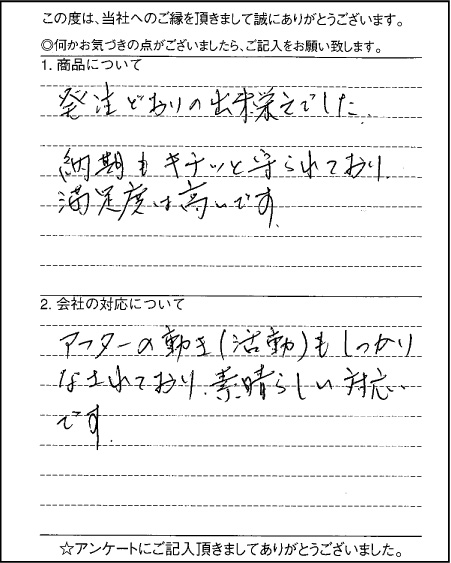 この度は、当社へのご縁を頂きまして誠にありがとうございます。
◎何かお気づきの点がございましたら、ご記入をお願い致します。
1. 商品について
発注どおりの出来栄えでした。
納期もキチッと守られており、
満足度は高いです。
2. 会社の対応について
アフターの動き(活動)もしっかり
なされており、素晴らしい対応
です。
☆アンケートにご記入頂きましてありがとうございました。